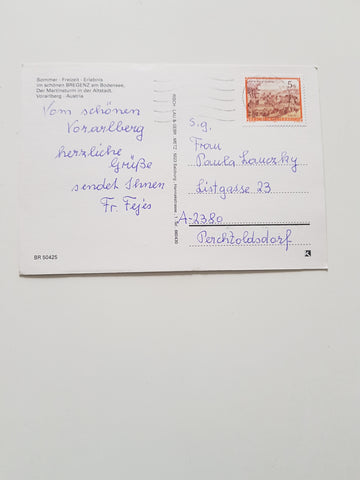 Sommer - Freizeit - Erlebnis
im schönen BREGENZ am Bodensee,
Der Martinsturm in der Altstadt.
Vorarlberg - Austria
Vom schönen
Vorarlberg
herzliche
Grüße
sendet Ihnen
Fr. Fejés
BR 50425
RISCH-LAU & GEBR. METZ 5023 Salzburg
5 S
S.g.
Frau
Paula Lauczky
Listgasse 23
A-2380
Perchtoldsdorf